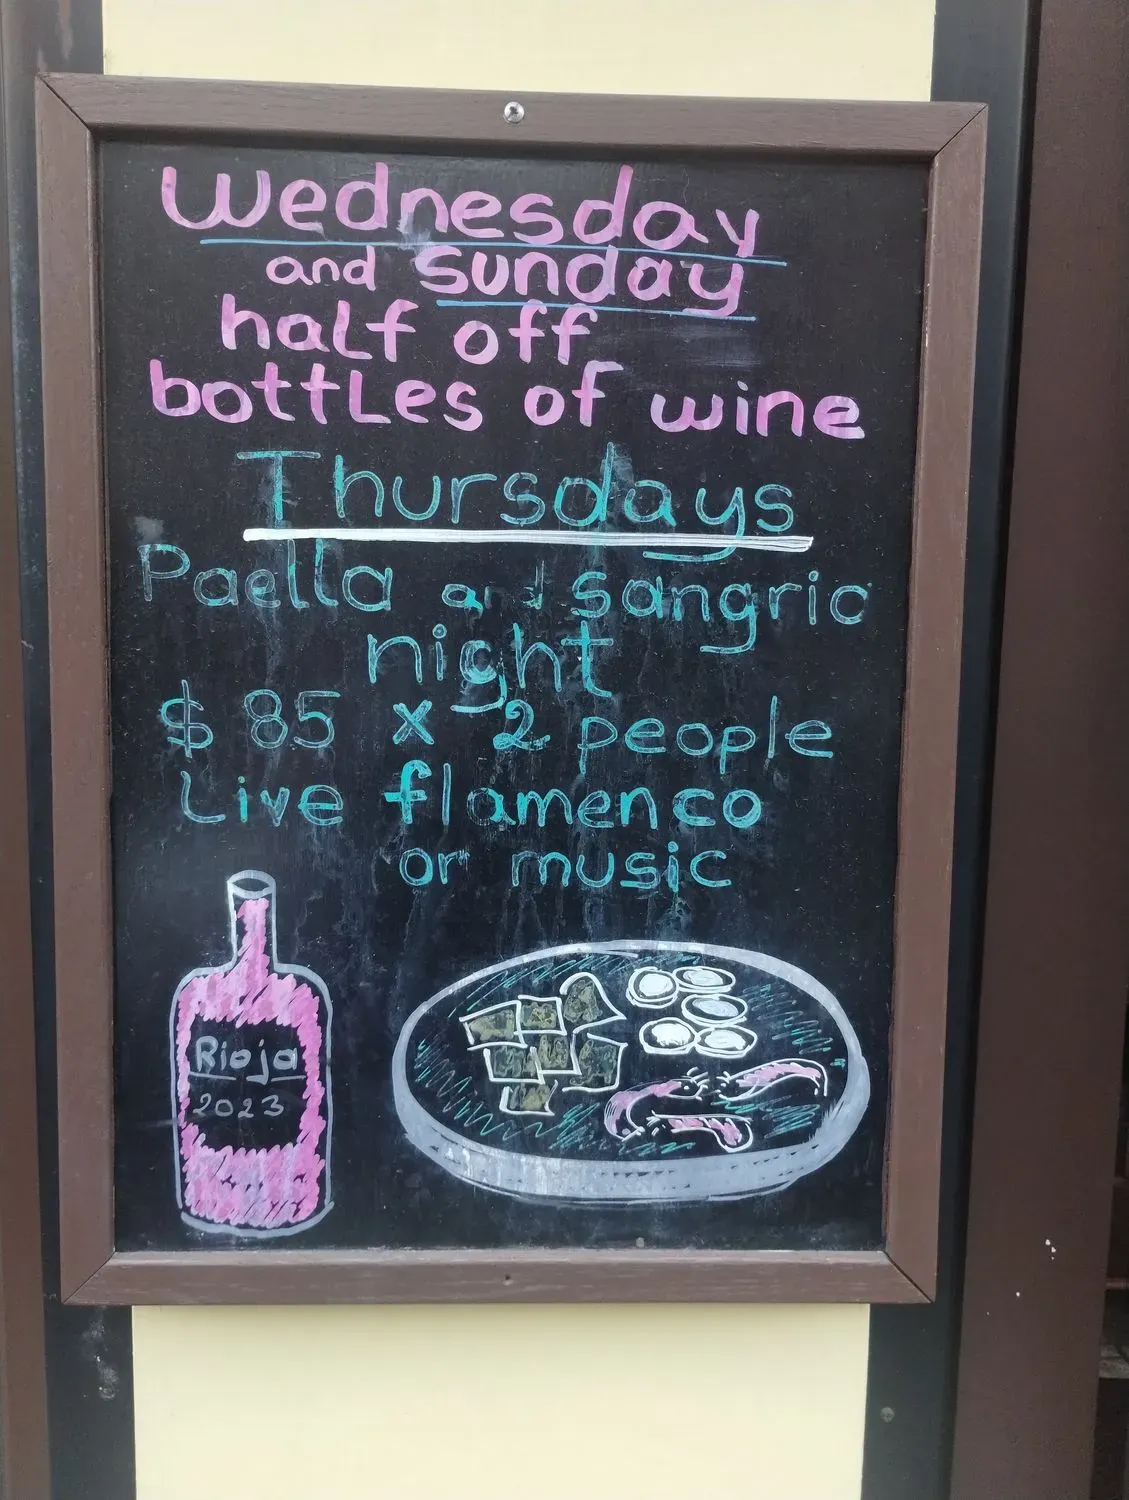 Wednesday
and sunday
half off
bottles of wine
Thursdays
Paella and sangria
night
$ 85 x 2 people
Live flamenco
or music
Rioja
2023